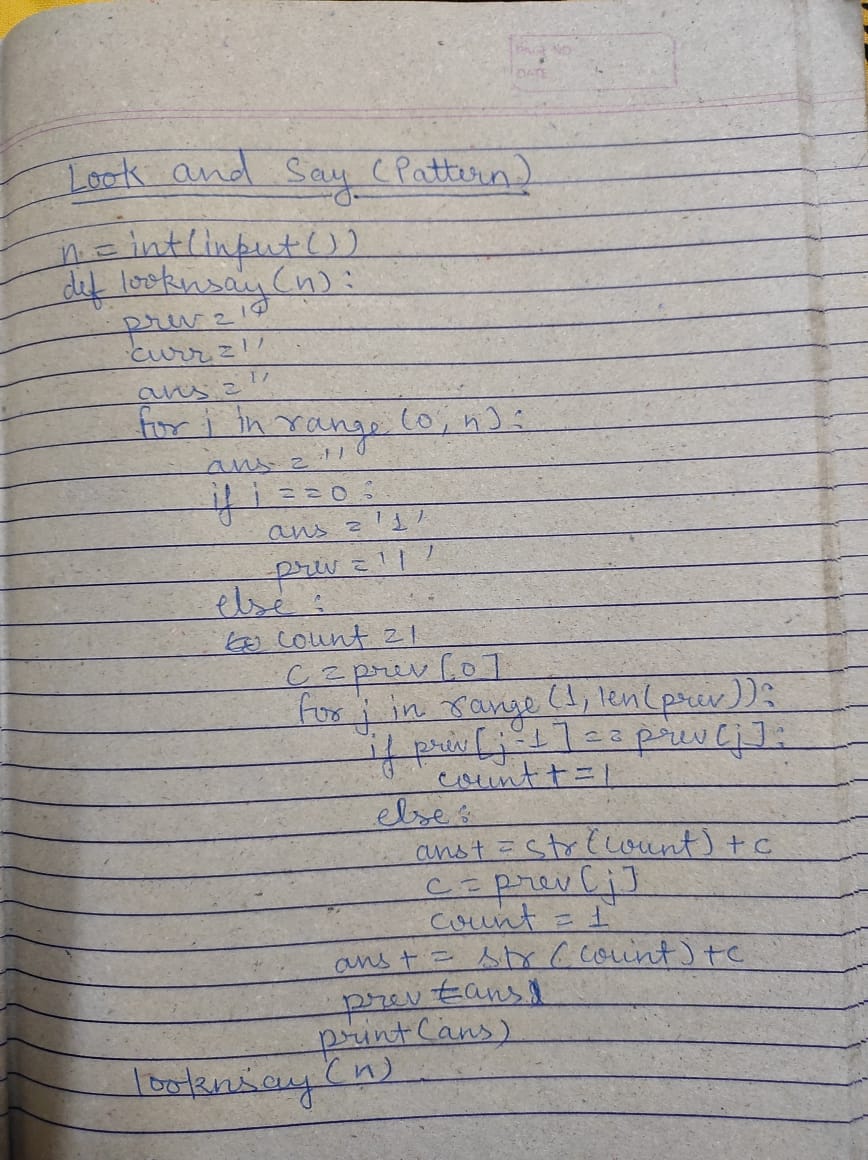 PAGE NO
DATE
Look and Say (Pattern)
n = int(input())
def looknsay(n):
prev = ''
curr = ''
ans = ''
for i in range (0, n):
ans = ''
if i == 0:
ans = '1'
prev = '1'
else:
count = 1
c = prev [0]
for j in range (1, len(prev)):
if prev [j-1] == prev [j]:
count += 1
else:
ans += str (count) + c
c = prev [j]
count = 1
ans += str (count) + c
prev = ans
print (ans)
looknsay (n)